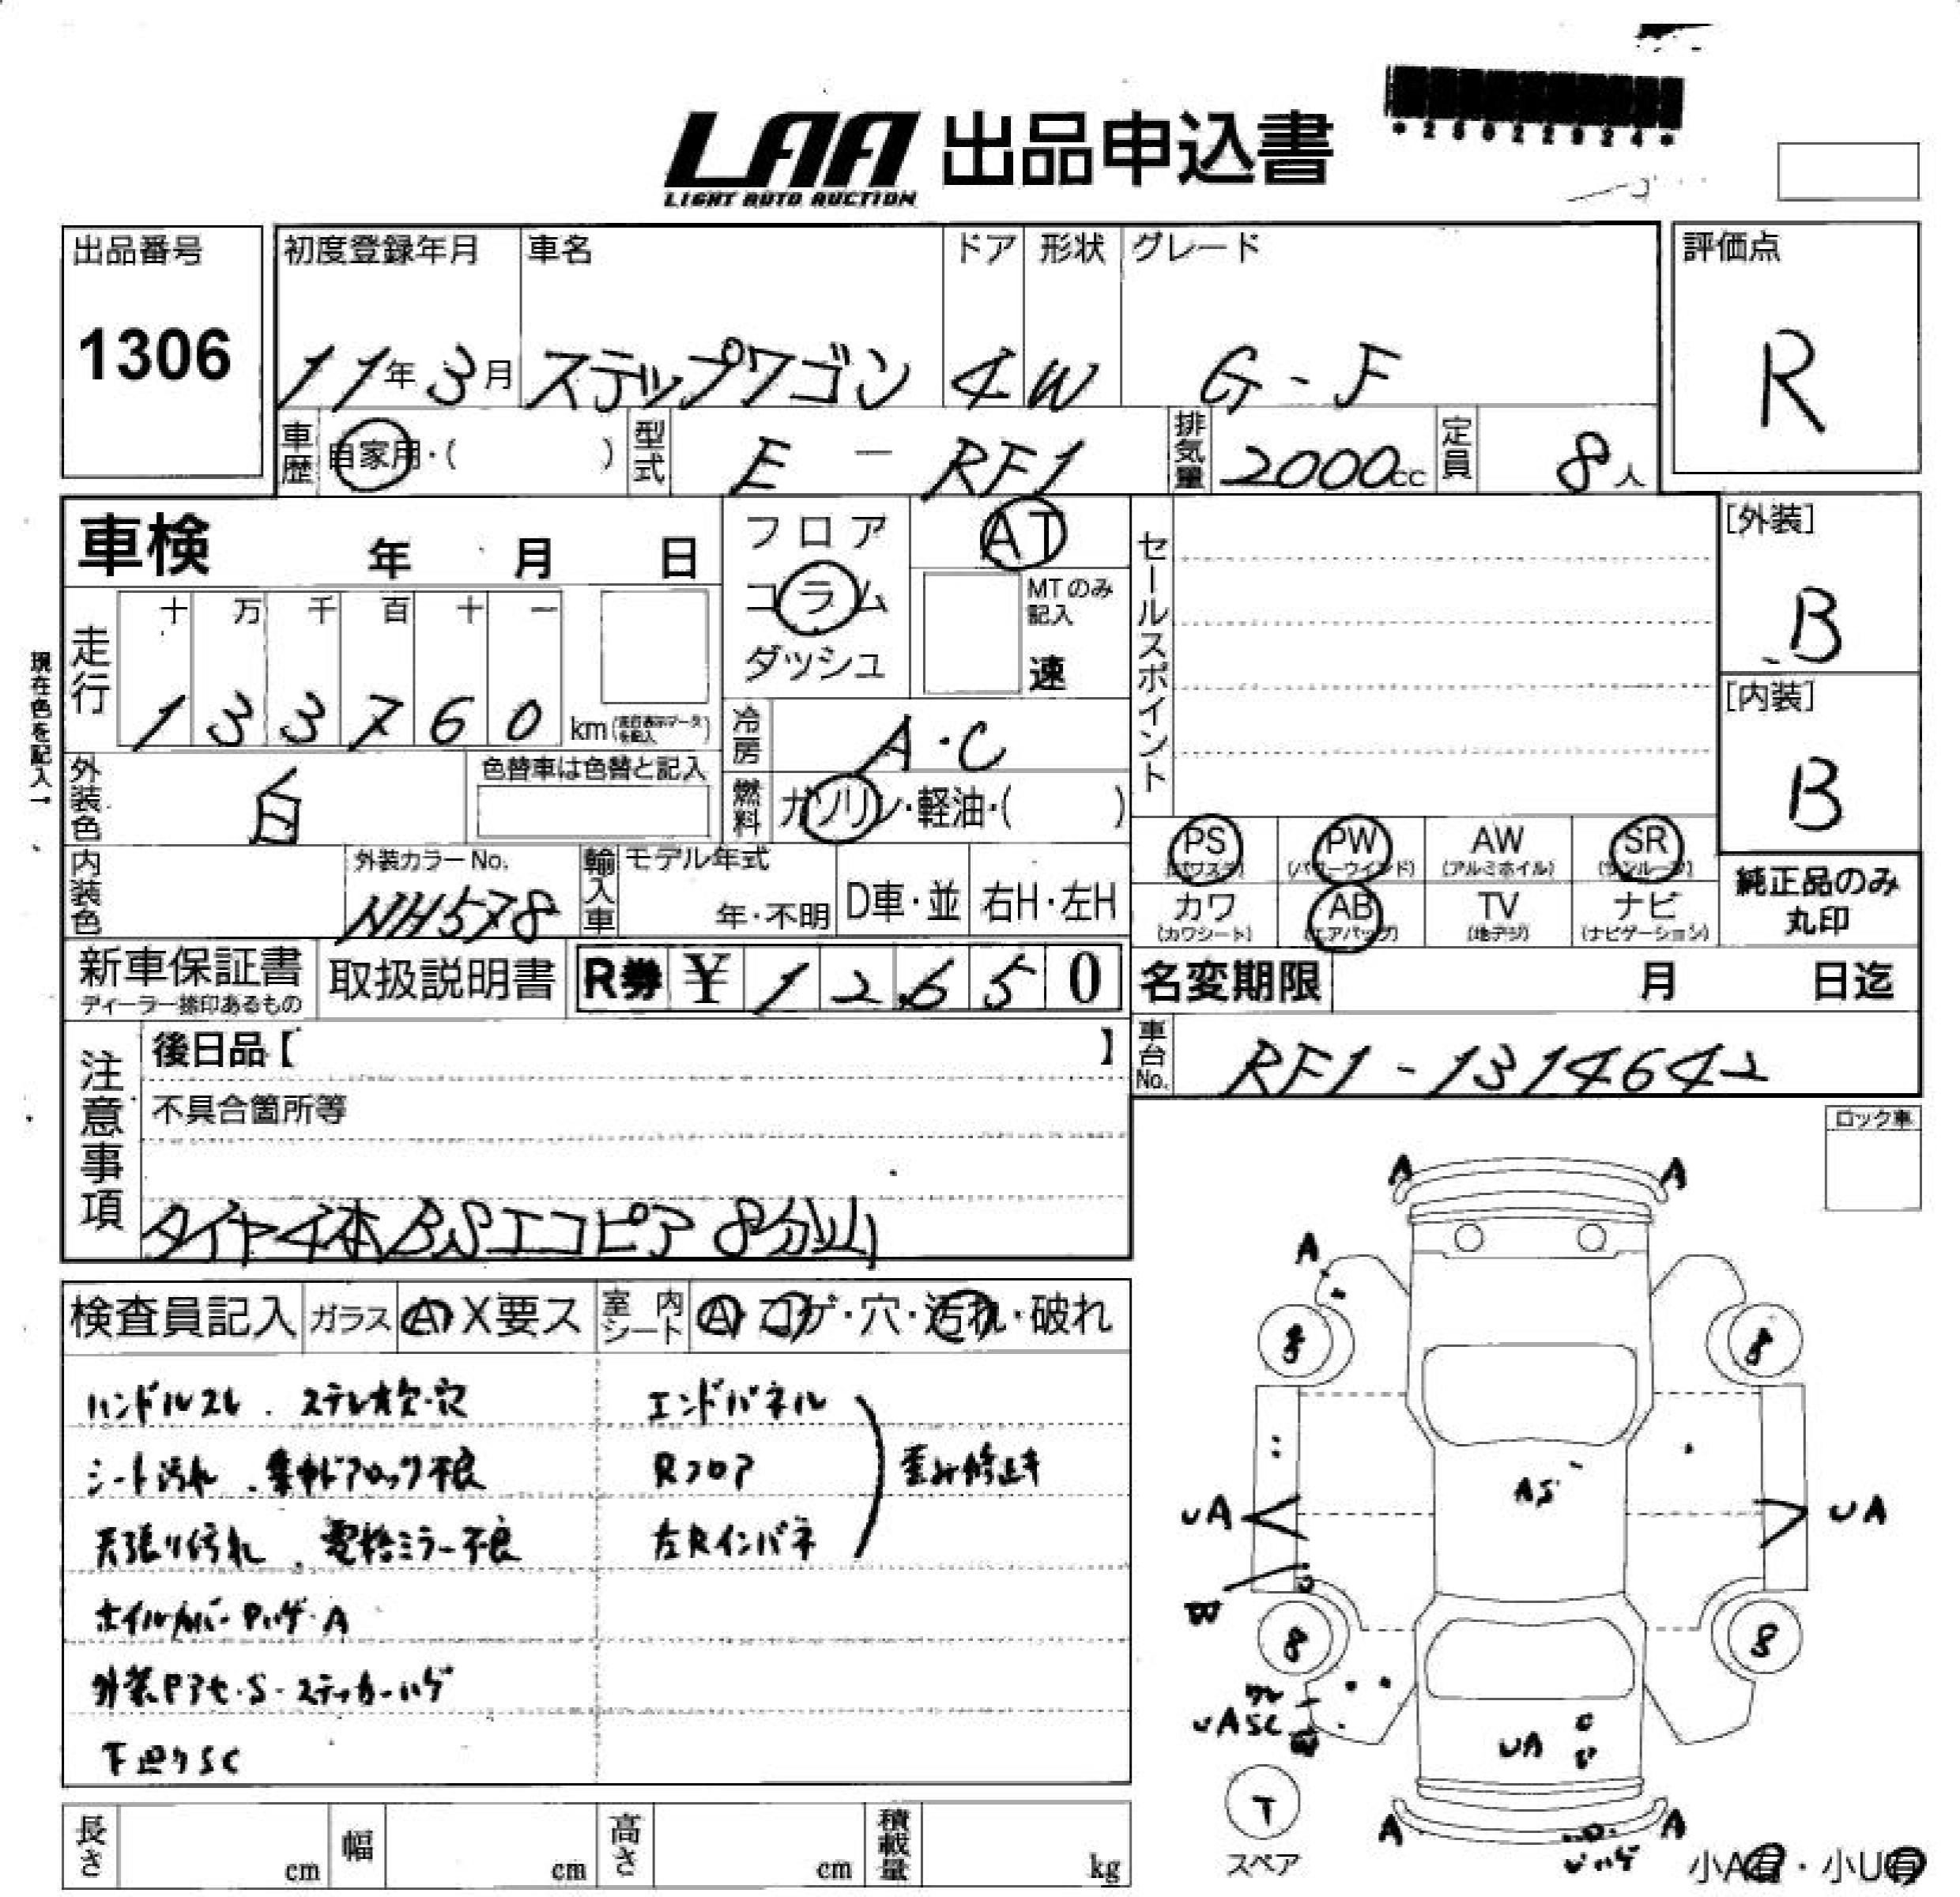 LAA 出品申込書
LIGHT AUTO AUCTION
*25022924*
出品番号
1306
初度登録年月 車名 ドア 形状 グレード
11年3月 ステップワゴン 4 W G-F
評価点
R
車歴 自家用・( ) 型式 E-RF1 排気量 2000cc 定員 8人
車検 年 月 日
フロア
コラム
ダッシュ
AT
MTのみ記入
速
セールスポイント
[外装]
B
[内装]
B
現在色を記入→
走行 十 万 千 百 十 一
1 3 3 7 6 0 km
冷房 A・C
外装色 白 色替車は色替と記入
燃料 ガソリン・軽油・( )
PS (パワステ) PW (パワーウインド) AW (アルミホイル) SR (サンルーフ)
カワ (カワシート) AB (エアバッグ) TV (地デジ) ナビ (ナビゲーション)
純正品のみ
丸印
内装色 外装カラーNo. NH578 輸入車 モデル年式 年・不明 D車・並 右H・左H
新車保証書 ディーラー捺印あるもの 取扱説明書 R券 ¥ 1 2 6 5 0
名変期限 月 日迄
車台No. RF1-1314642
注意事項
後日品【 】
不具合箇所等
タイヤ4本BSエコピア 8分山
ロック車
検査員記入 ガラス A X要ス 室内シート A・コゲ・穴・汚れ・破れ
ハンドルスレ . ステレオ欠・穴 エンドパネル
シート汚れ . 集中ドアロック不良 Rフロア 歪み修正キ
天張り汚れ . 電格ミラー不良 左Rインパネ
ホイルカバーPハゲ・A
外装Pアセ・S・ステッカーハゲ
下廻りSC
A A
A
8 8
AS
UA UA
W
8 8
ワレ
UASC
UA
T
スペア
A A
Uハゲ
小A有・小U有
長さ cm 幅 cm 高さ cm 積載量 kg